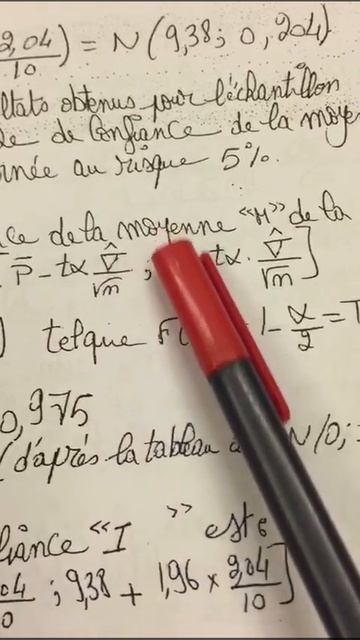 2,04/10) = N(9,38; 0,204)
ltats obtenus pour l'échantillon
de de Confiance de la moye
née au risque 5%.
ce de la moyenne "M" de la
P̄ - tα σ̂/√n ; tα . σ̂/√n]
) telque F( 1 - α/2 =
0,975
(d'après la tableau N(0;
fiance "I" est
04/0 ; 9,38 + 1,96 × 2,04/10]